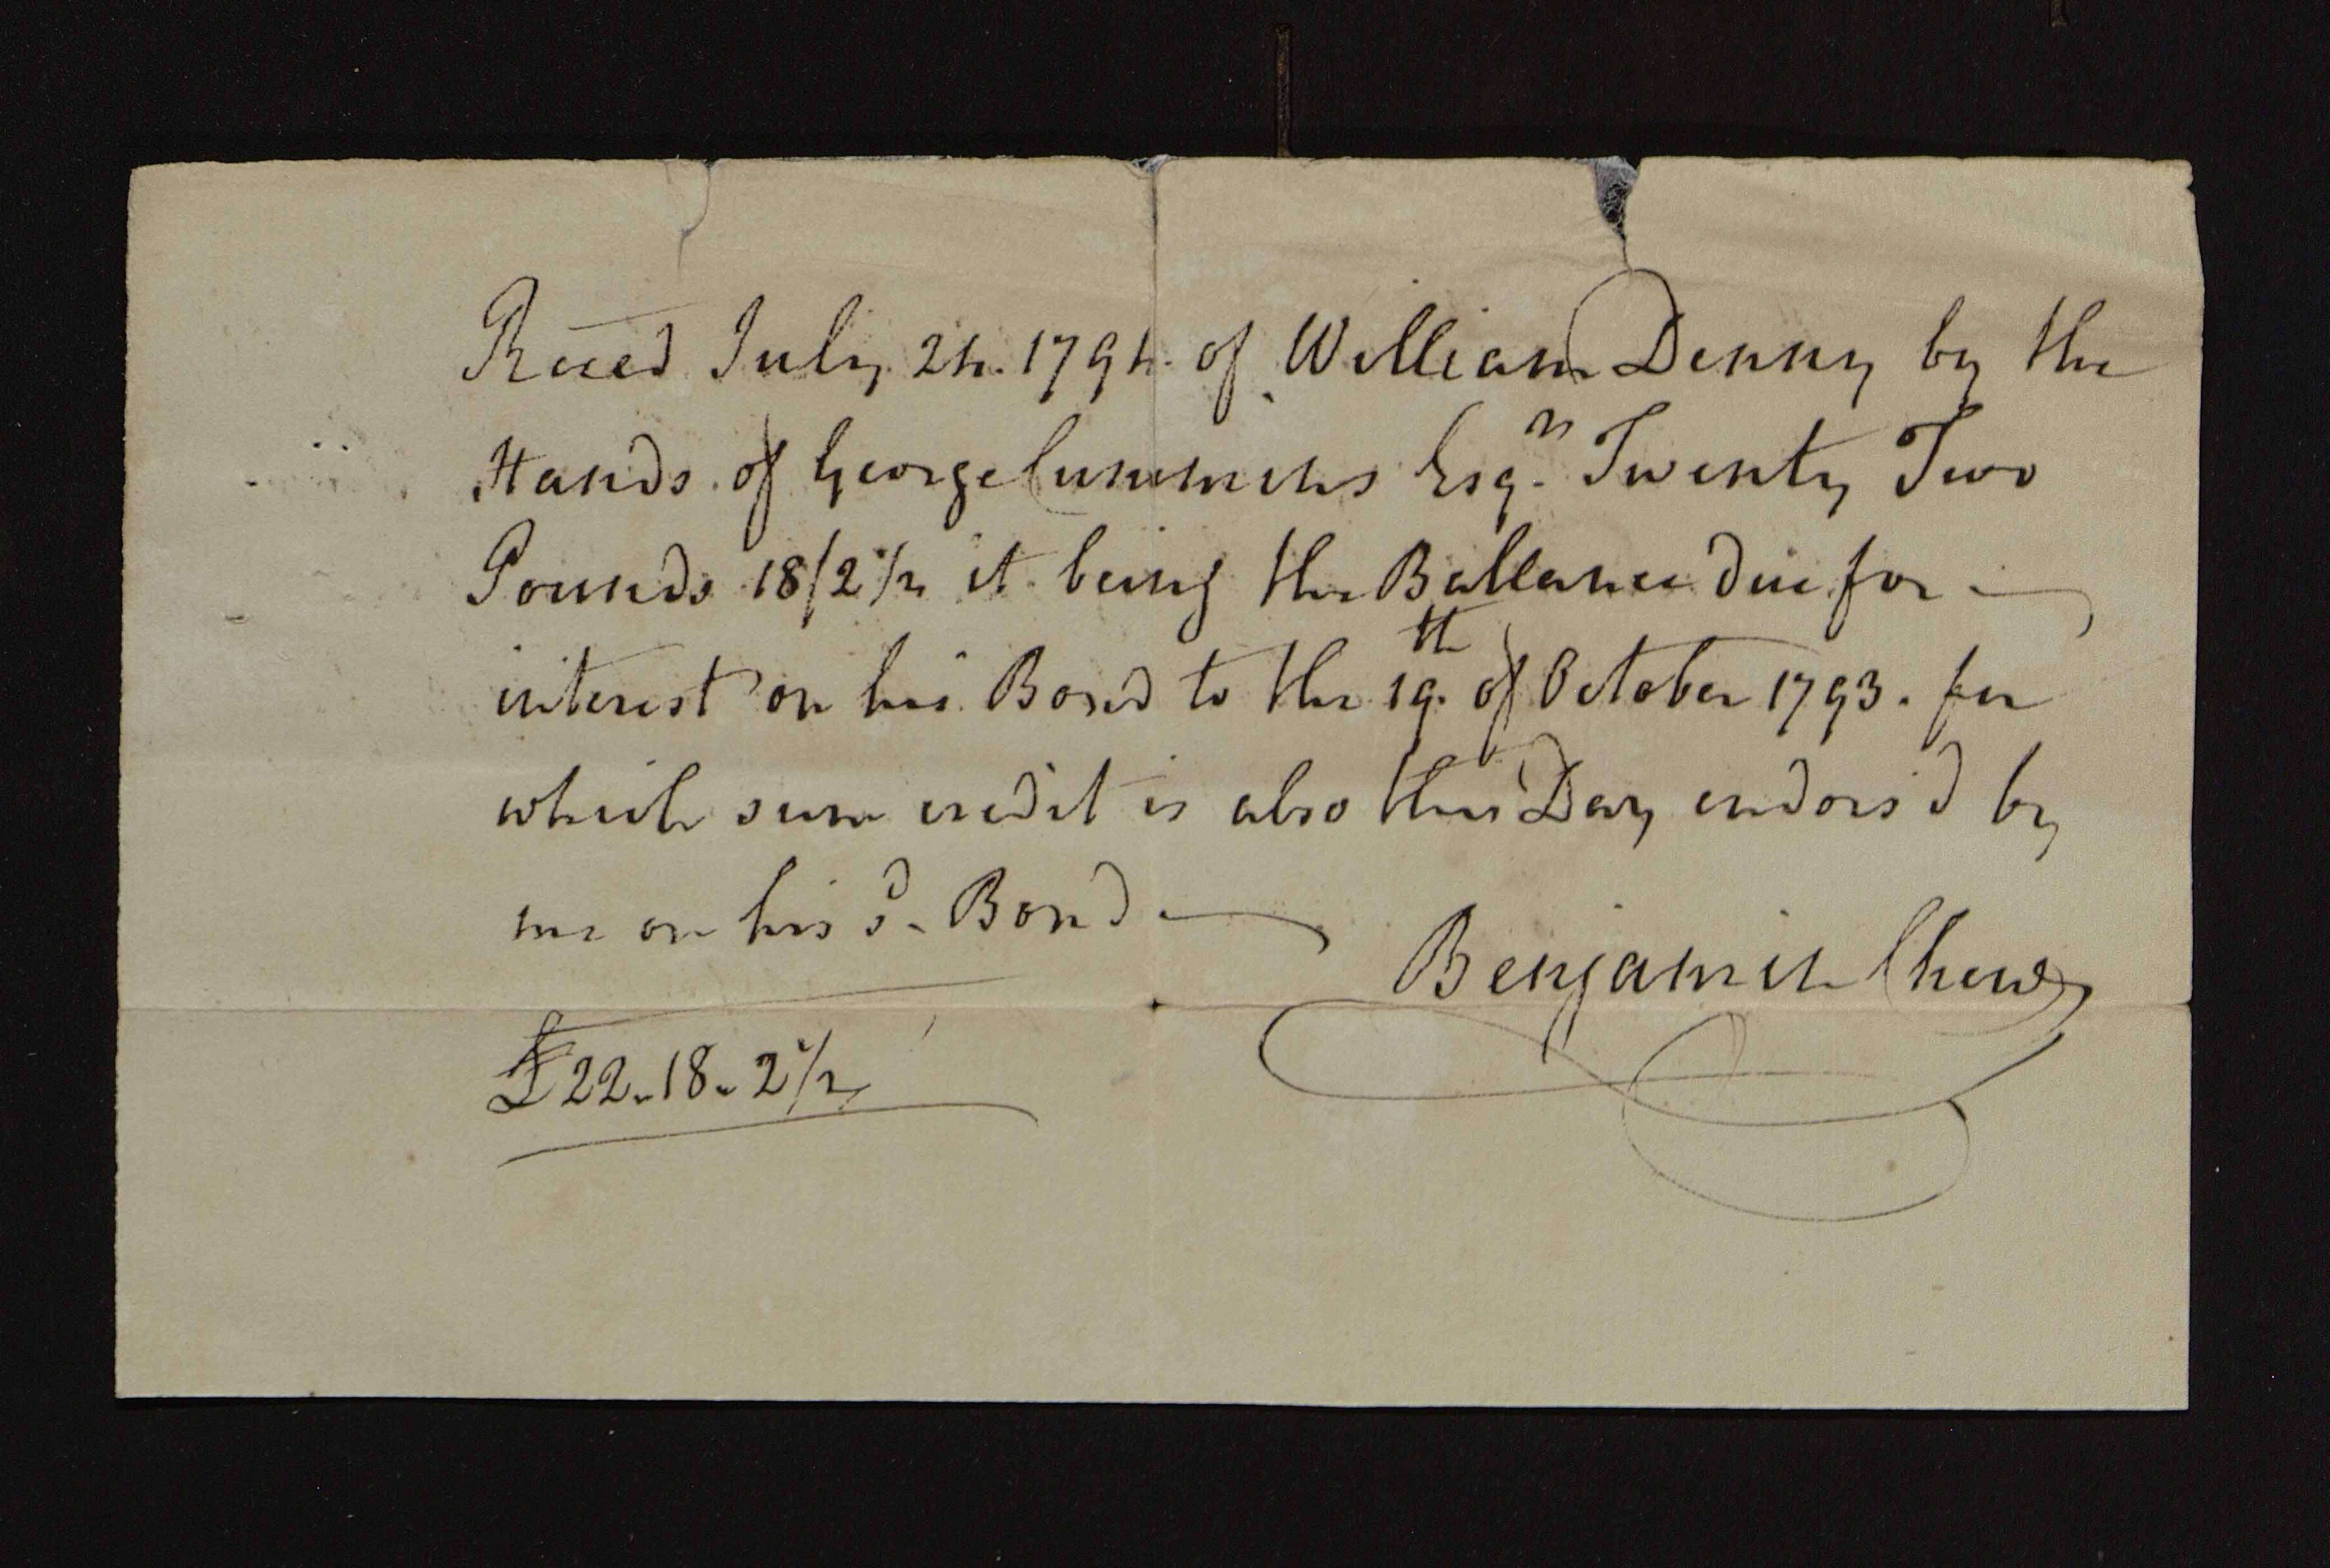 Recēd July 24. 1794. of William Denny by the
Hands of George Cummins Esqr. Twenty Two
Pounds 18/2 1/2 it being the Ballance due for —
interest on his Bond to the 19th. of October 1793. for
which sum credit is also this Day endors'd by
me on his sd. Bond —
Benjamin Chew
£22-18-2 1/2